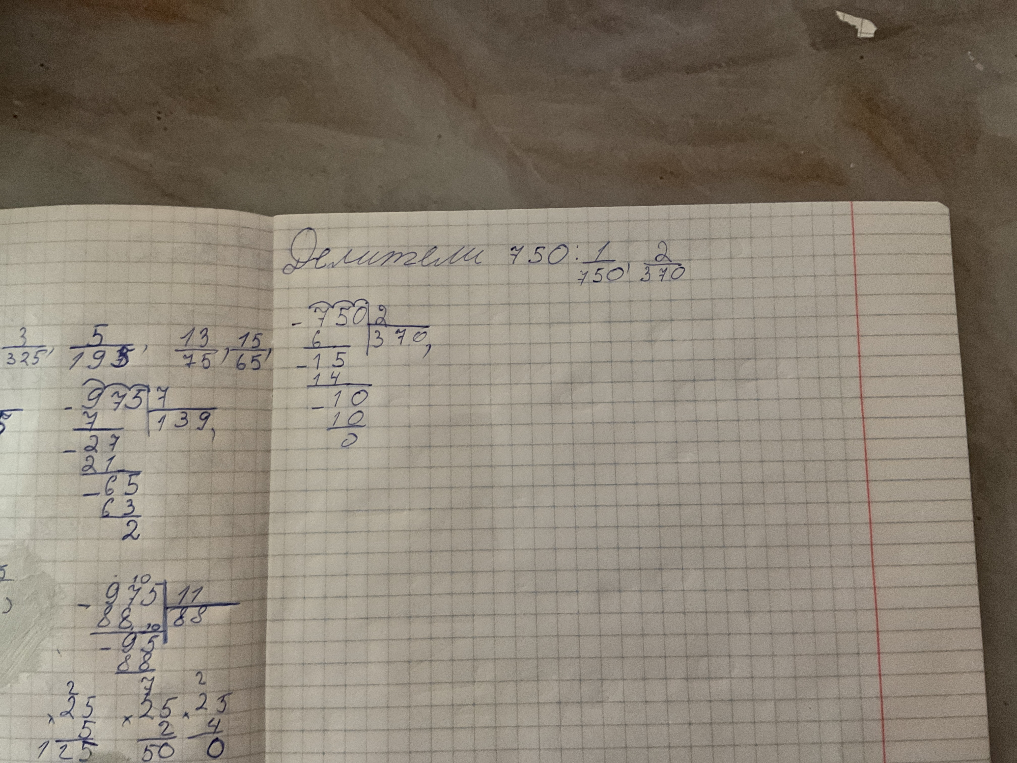 3/325, 5/195, 13/75, 15/65,
- 975 | 7
7 | 139,
- 27
21
- 65
63
2
- 975 | 11
88 | 88
- 95
88
2 7 2
× 25 × 25 × 25
5 2 4
125 50 0
Делители 750: 1/750, 2/370
- 750 | 2
6 | 370,
- 15
14
- 10
10
0